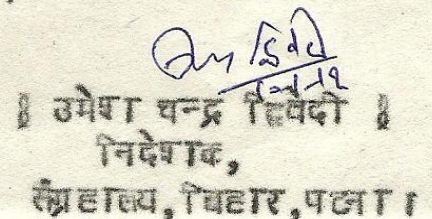 ॥ उमेश चन्द्र द्विवेदी ॥
निदेशक,
संग्रहालय, बिहार, पटना ।